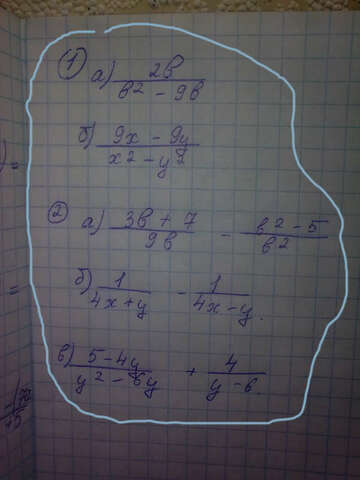 1 а) 2в / в² - 9в
б) 9x - 9y / x² - y²
2 а) 3в + 7 / 9в - в² - 5 / в²
б) 1 / 4x + y - 1 / 4x - y.
в) 5 - 4y / y² - 6y + 4 / y - 6.
=
=